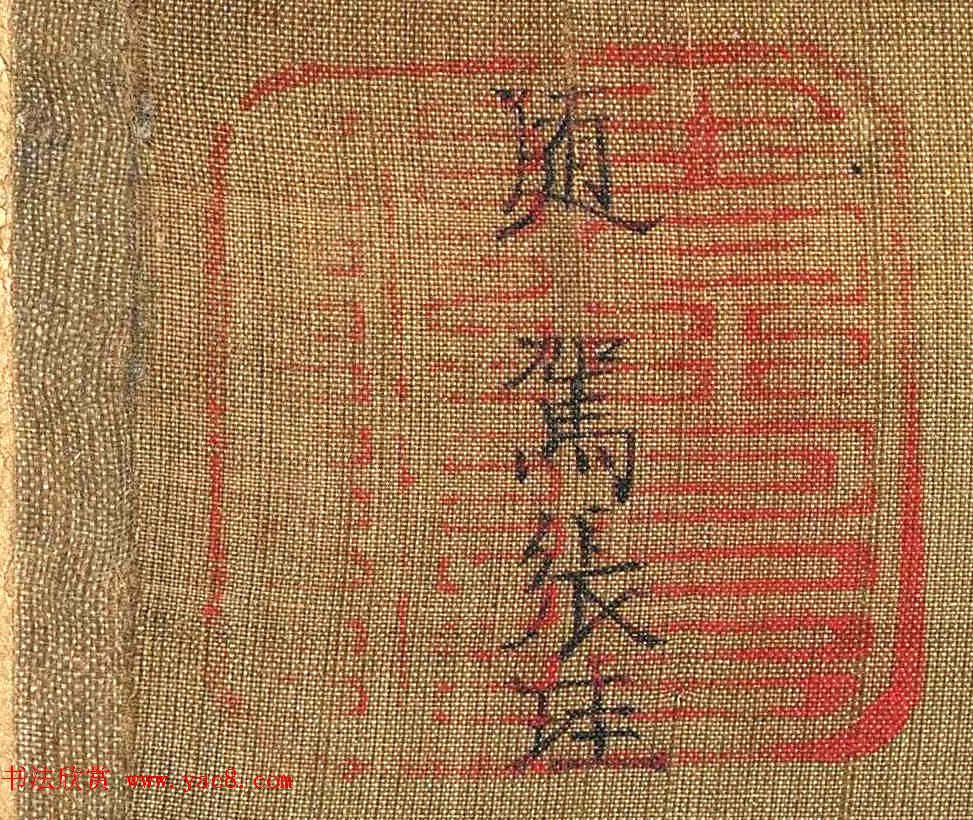 随
駕
張
珪
书法欣赏 www.yac8.com